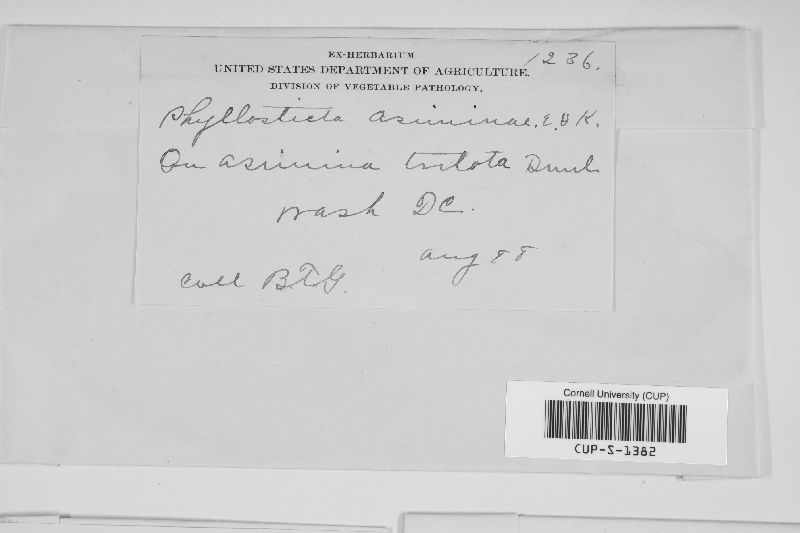 EX-HERBARIUM
1236.
UNITED STATES DEPARTMENT OF AGRICULTURE.
DIVISION OF VEGETABLE PATHOLOGY.
Phyllosticta asiminae, E. & K.
On asimina triloba Dunl
Wash DC.
Aug 88
Coll B.T.G.
Cornell University (CUP)
CUP-S-1382